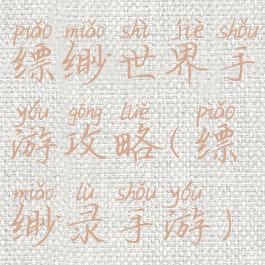 piǎo miǎo shì jiè shǒu
缥缈世界手
yóu gōng lüè piǎo
游攻略(缥
miǎo lù shǒu yóu
缈录手游)